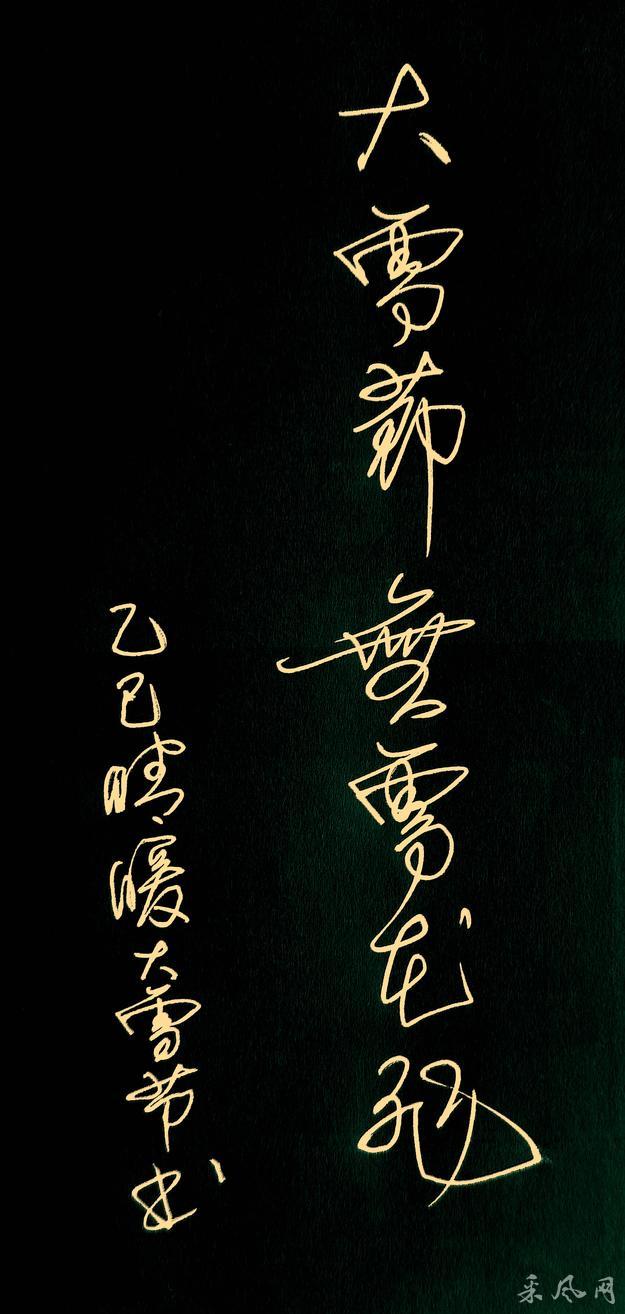 大雪節無雪花飛
乙巳晴暖大雪节书
采风网